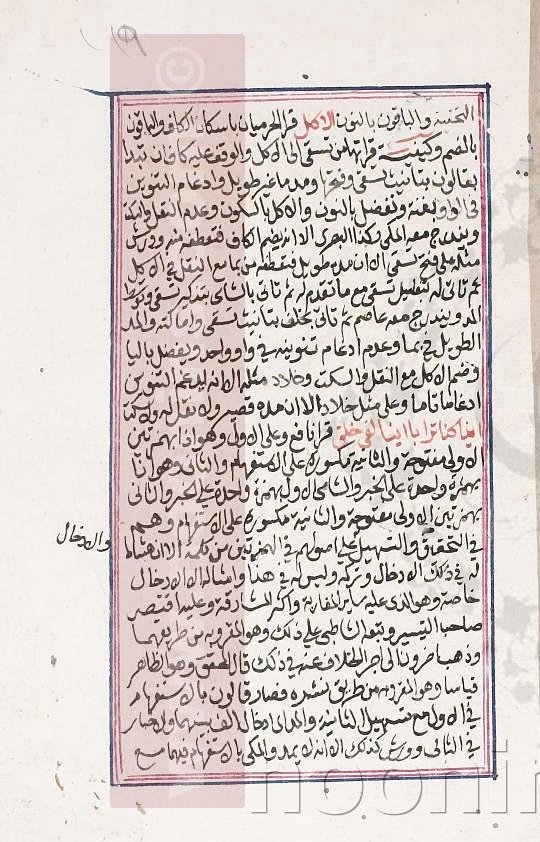 ١٩
التحتية والباقون بالنون الاكل قرا الحرميان باسكان الكاف والباقون
بالضم وكيفية قراتها من تسقى الى الاكل والوقف عليه كاف ان تبدا
بقالون بتانيث تسقى وفتحها ومد ماء غير طويل وادغام التنوين
في الواو بغنة ونفضل بالنون والاكل بالسكون وعدم النقل والسكت
ويندرج معه المكي وكذا البصري الا انه بضم الكاف فتعطفه منه وورش
مثله على فتح تسقى الا ان مده طويل فتعطفه من بما مع النقل في الاكل
ثم تاتي له بتقليل تسقى مع ما تقدم له ثم تاتي بالشامي بتذكير تسقى وتوسط
المد ويندرج معه عاصم ثم تاتي بخلف بتانيث تسقى وامالته والمد
الطويل في بما وعدم ادغام تنوينه في واو واحد ويفضل باليا
وضم الاكل مع النقل والسكت وخلاد مثله الا انه يدغم التنوين
ادغاما تاما وعلي مثل خلاد الا ان مده قصير ولا نقل له ولا سكت
ائذا كنا ترابا ائنا لفي خلق قرا نافع وعلي الاول وهو اذا بهمزتين
الاولى مفتوحة والثانية مكسورة على الاستفهام والثاني وهو انا
بهمزة واحدة على الخبر والشامي الاول بهمزة واحدة على الخبر والثاني
بهمزتين الاولى مفتوحة والثانية مكسورة على الاستفهام وهم
في التحقيق والتسهيل على اصولهم في الهمزتين من كلمة الا ان هشاما
والادخال
له في ذلك الادخال وتركه وليس له في هذا وامثاله الا الادخال
خاصة وهو الذي عليه ساير المغاربة واكثر المشارقة وعليه اقتصر
صاحب التيسير وتبعه الشاطبي على ذلك وهو المقروء به من طريقهما
وذهب اخرون الى اجراء الخلاف عنه في ذلك قال المحقق وهو الظاهر
قياسا وهو المقروء به من طريق نشره فصار قالون بالاستفهام
في الاول مع تسهيل الثانية والمد اي ادخال الف بينهما والاخبار
في الثاني وورش كذلك الا انه لا يمد والمكي بالاستفهام فيهما مع